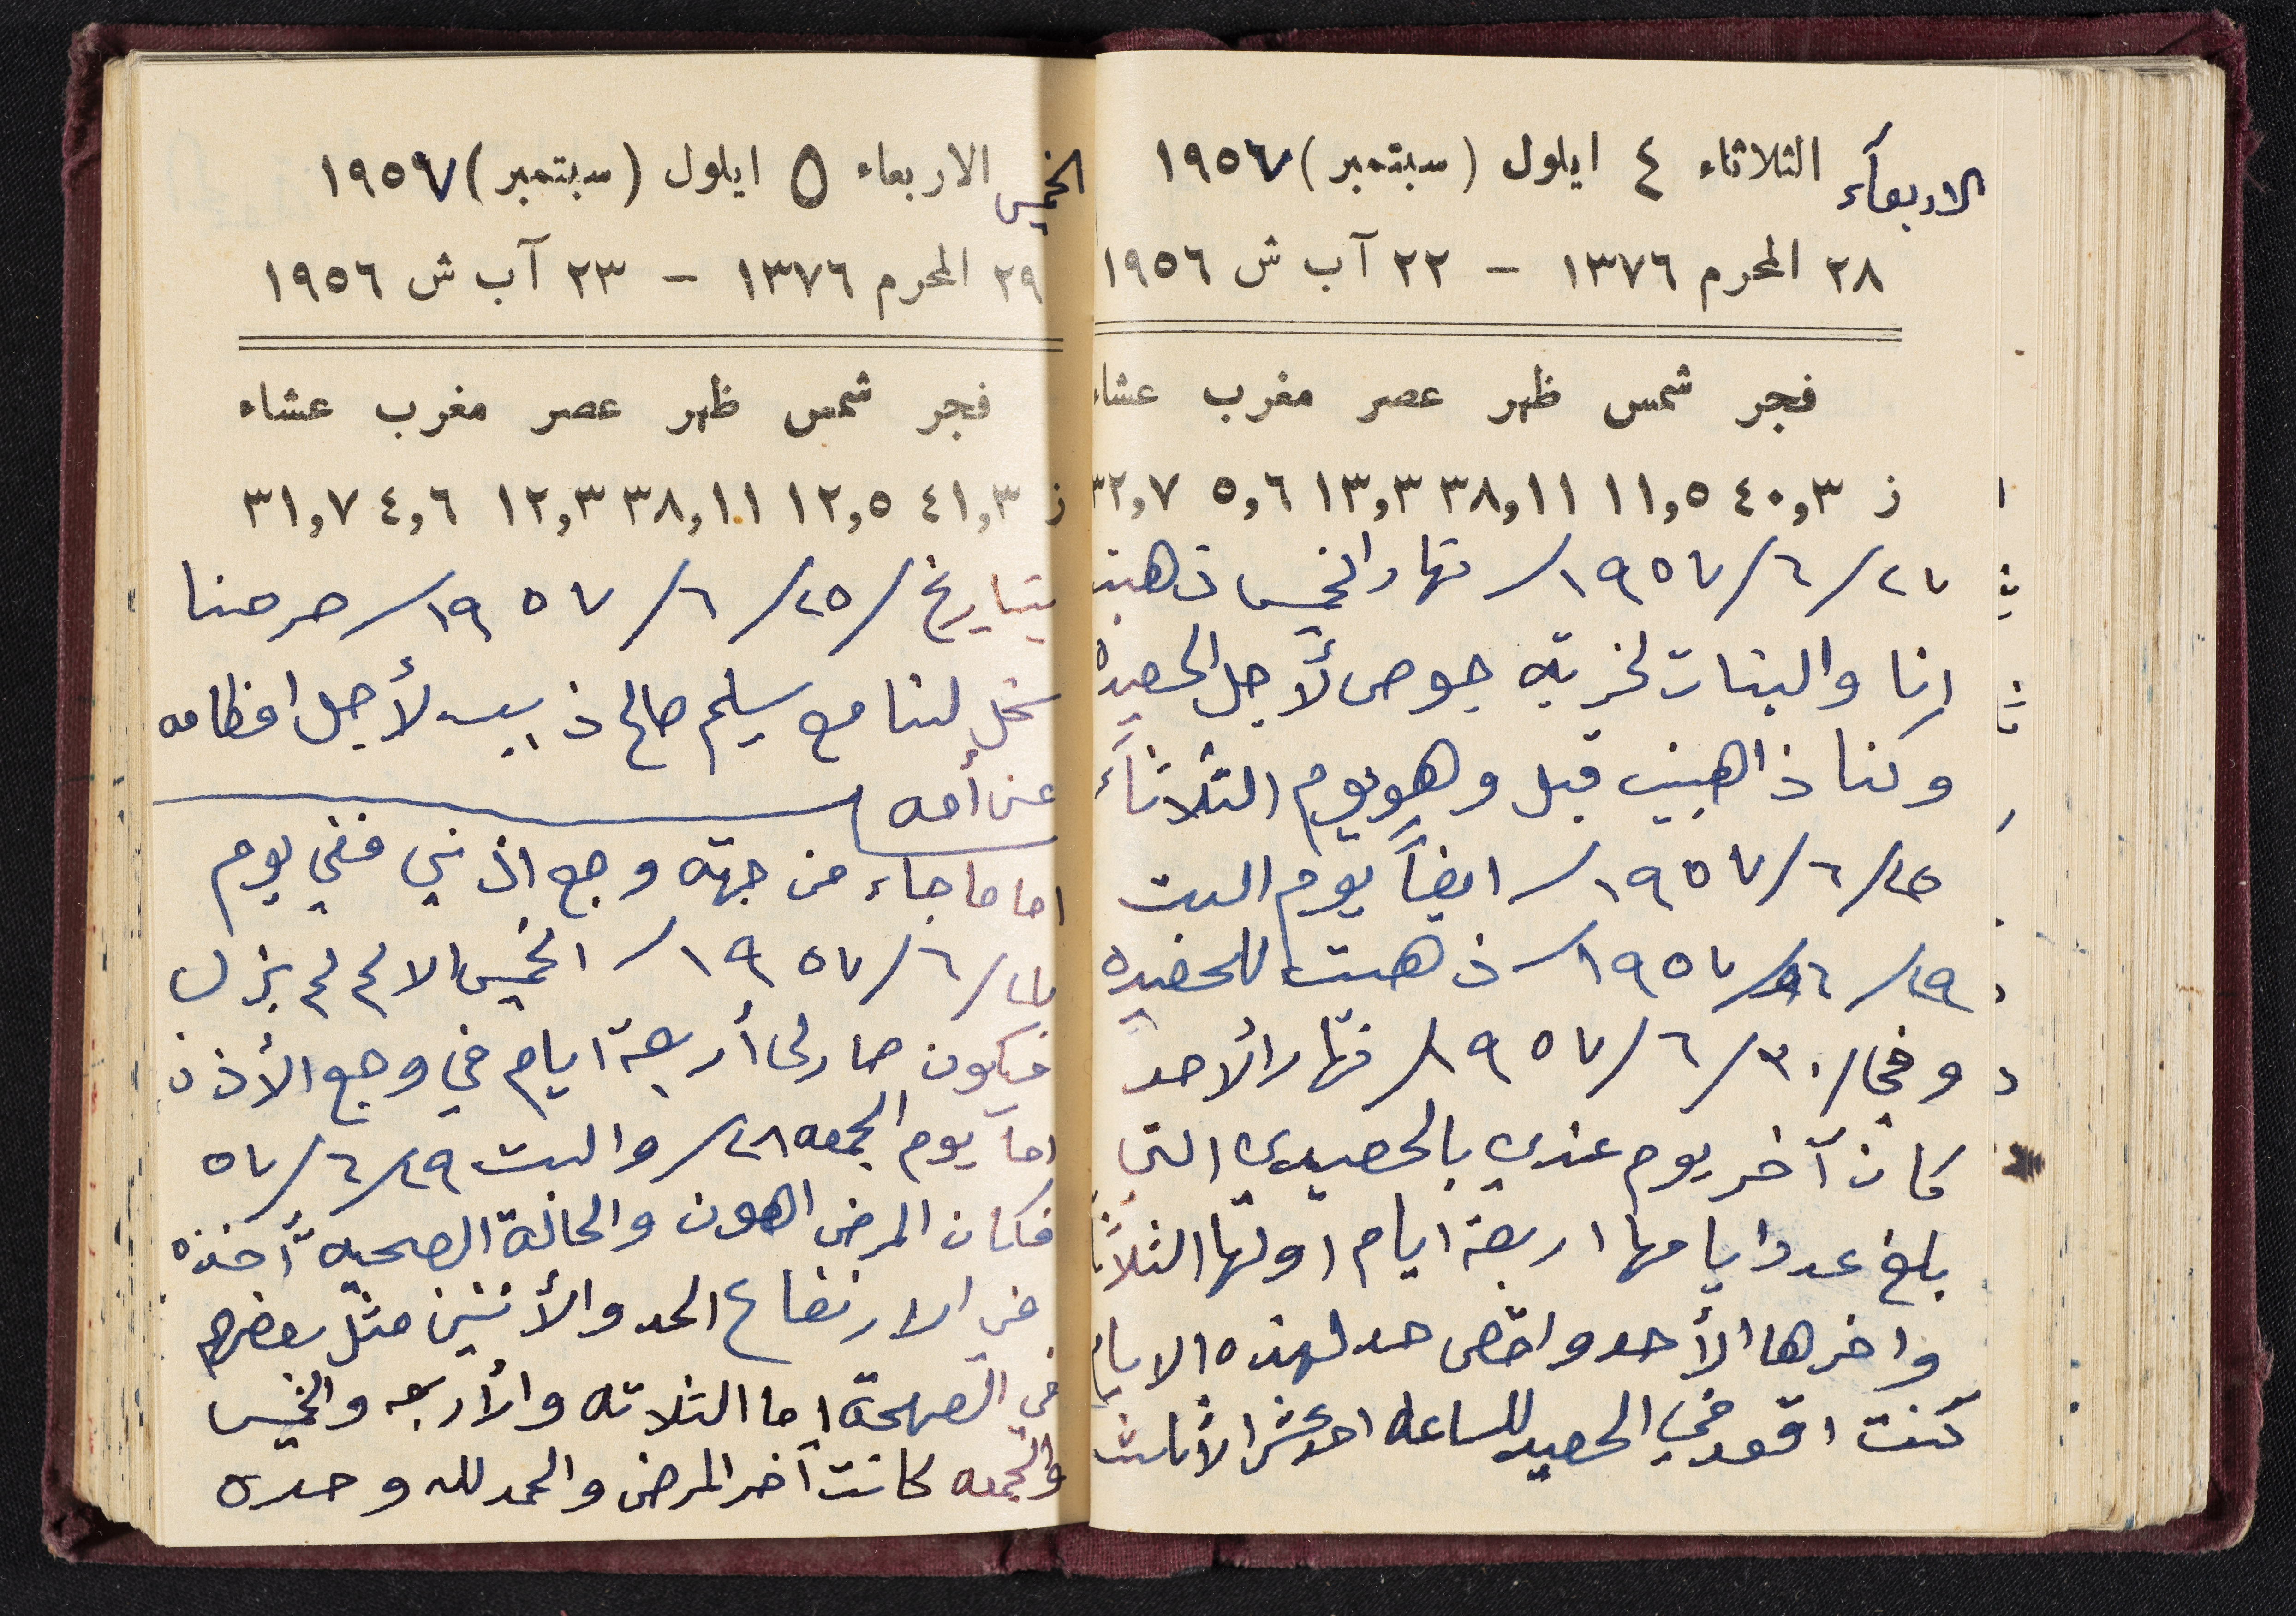 الاربعآء الثلاثاء ٤ ايلول (سبتمبر) ١٩٥٧
٢٨ المحرم ١٣٧٦ – ٢٢ آب ش ١٩٥٦
فجر شمس ظهر عصر مغرب عشاء
ز ٤٠,٣ ١١,٥ ٣٨,١١ ١٣,٣ ٥,٦ ٣٢,٧
٢٧/٦/١٩٥٧/ نهار الخميس ذهبت
انا والبنات لخربة جوص لأجل الحصيده
وكنا ذاهبين قبل وهو يوم الثلاثآء
٢٥/٦/١٩٥٧/ ايضاً يوم السبت
٢٩/٦/١٩٥٧/ ذهبت للحصيده
وفي/٣٠/٦/١٩٥٧/ نهار الأحد
كان آخر يوم عندي بالحصيدي التي
بلغ عدد ايامها اربعة ايام اولها الثلاثا
واخرها الأحد واقصى حد لهذه الايام
كنت اقعد في الحصيد للساعه احد عشر الا ثلث
الخميس الاربعاء ٥ ايلول (سبتمبر) ١٩٥٧
٢٩ المحرم ١٣٧٦ – ٢٣ آب ش ١٩٥٦
فجر شمس ظهر عصر مغرب عشاء
ز ٤١,٣ ١٢,٥ ٣٨,١١ ١٢,٣ ٤,٦ ٣١,٧
بتاريخ/٢٥/٦/١٩٥٧/ سرحنا
سخل لنا مع سليم صالح ذيب لأجل افطامه
عن أمه
اما ما جاء من جهة وجع اذني ففي يوم
٢٧/٦/١٩٥٧/ الخميس الالم لم يزل
فيكون صار لي أربعة ايام في وجع الأذن
اما يوم الجمعه ٢٨/ والسبت ٢٩/٦/٥٧
فكان المرض اهون والحالة الصحيه آخذه
في الارتفاع الحد والأثنين مثل بعضهم
في الصحة اما الثلاثه والأربعه والخميس
والجمعه كانت آخر المرض والحمد لله وحده